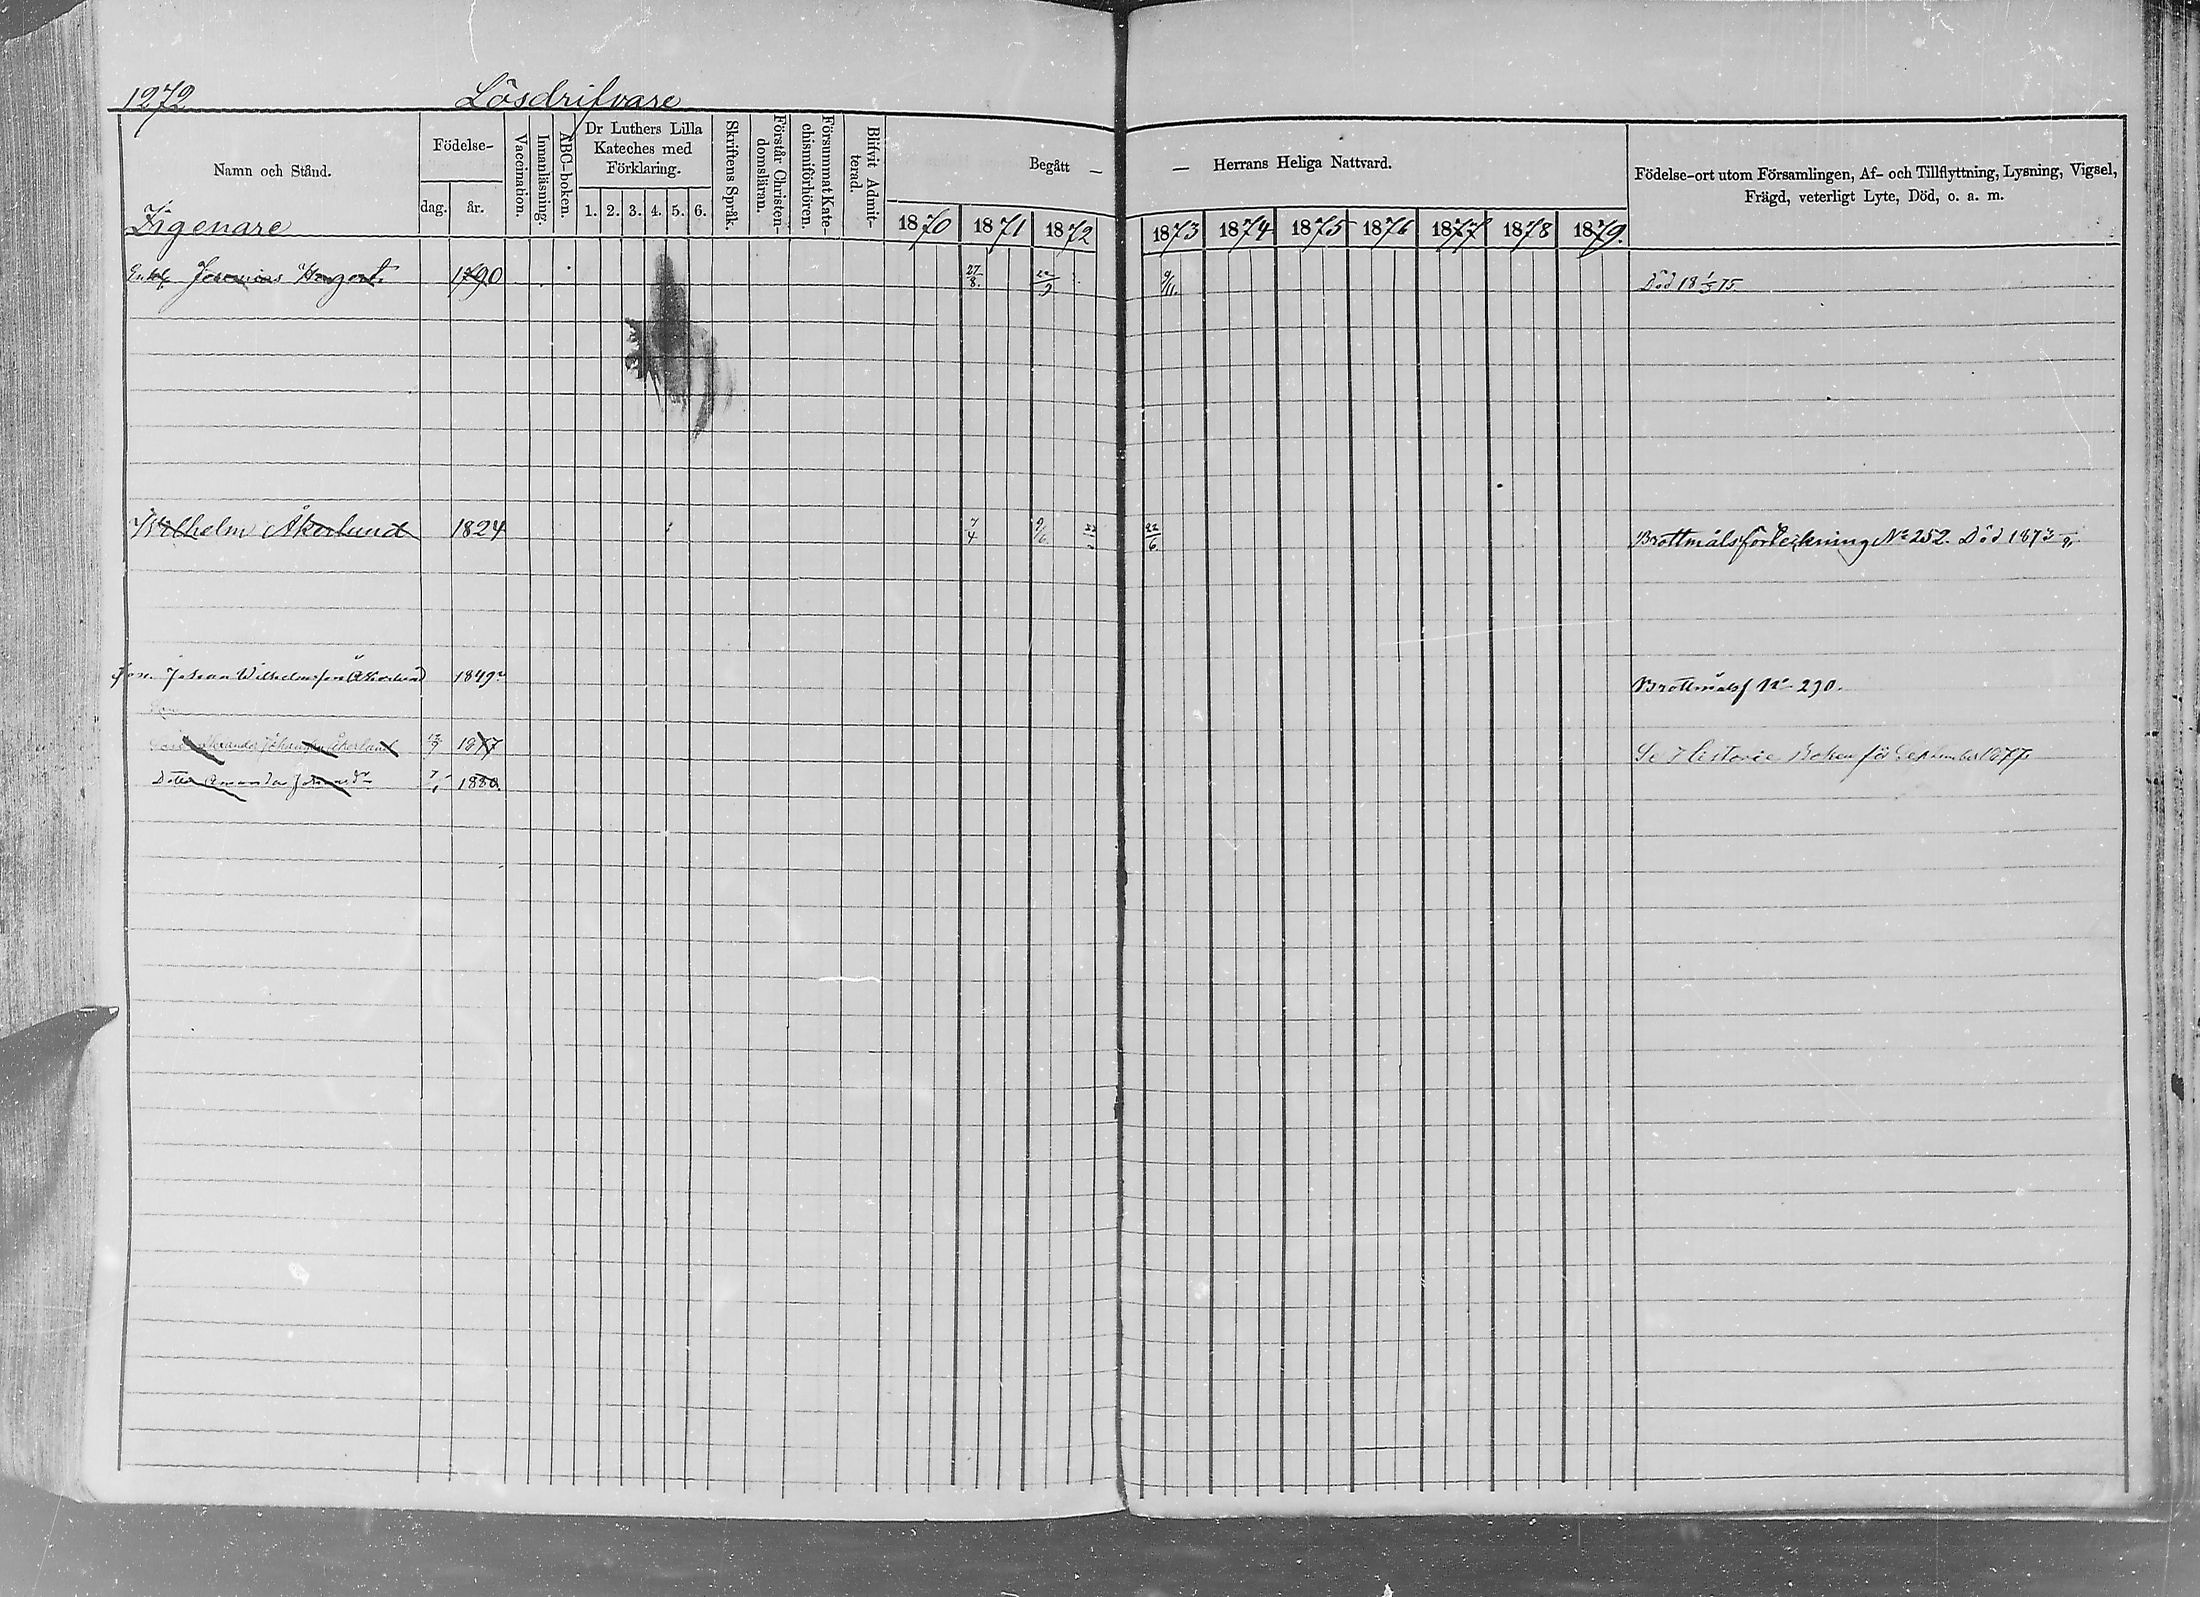 1272 Lösdrifvare
Namn och Stånd.
Födelse-
dag. år.
Vaccination.
Innanläsning.
ABC-boken.
Dr Luthers Lilla
Kateches med
Förklaring.
1. 2. 3. 4. 5. 6.
Skriftens Språk.
Förstår Christen-
domsläran.
Försummat Kate-
chismiförhören.
Blifvit Admit-
terad.
Begått — — Herrans Heliga Nattvard.
1870 1871 1872 1873 1874 1875 1876 1877 1878 1879.
Födelse-ort utom Församlingen, Af- och Tillflyttning, Lysning, Vigsel,
Frägd, veterligt Lyte, Död, o. a. m.
Zigenare
Enkl. Jeremias 1790 27/8. 22/9 9/11. Död 18 1/5 75.
Wilhelm Åkerlund 1824 7/4 9/6 22/6 Brottmålsförteckning No 252. Död 1873
Son. Johan Wilhelmsson Åkerlund 1849 Brottmålsf No 290.
Alexander Johansson Åkerlund 1877 Se Historie Boken för September 1877.
Dotter Amanda 1880.